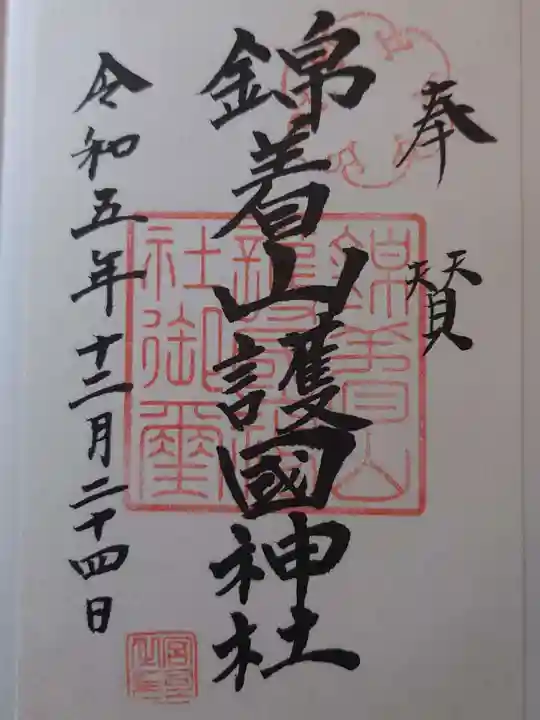 奉賛
錦着山護國神社
錦着山護國神社御璽
令和五年十二月二十四日